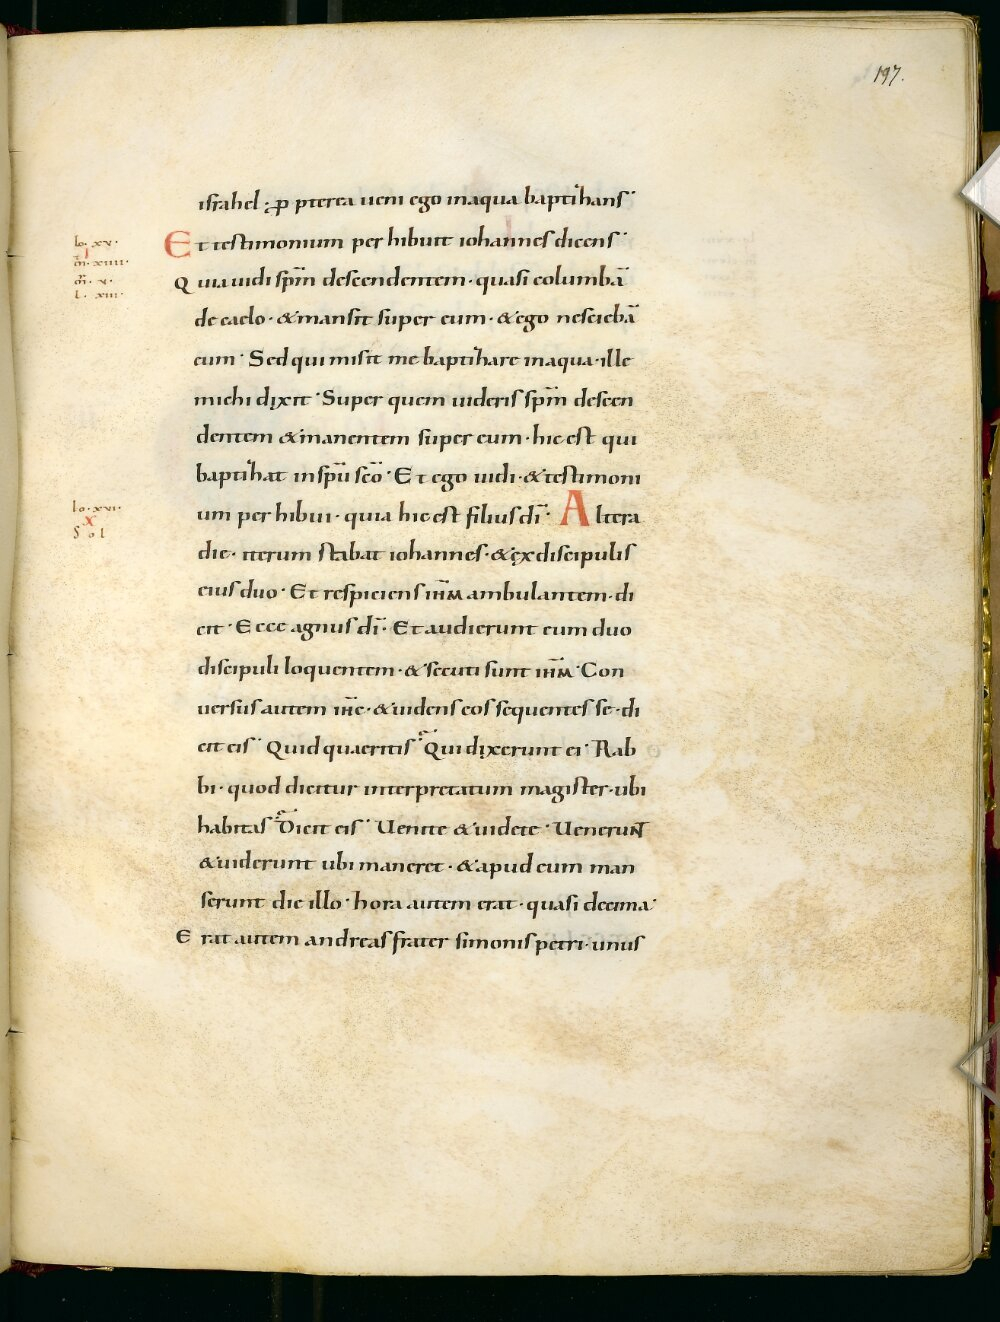 197.
israhel ; p pterea ueni ego in aqua baptizans·
lo· xv·
I
m̄· xiiii·
m̄r· v·
l· xiii·
Et testimonium perhibuit iohannes dicens·
Quia uidi sp̄m descendentem· quasi columbā
de caelo· & mansit super eum· & ego nesciebā
eum· Sed qui misit me baptizare in aqua· ille
michi dixit· Super quem uideris sp̄m descen
dentem & manentem super eum· hic est qui
baptizat in sp̄u sc̄o· Et ego uidi· & testimoni
lo· xvi·
X
Sol
um perhibui· quia hic est filius dī· Altera
die· iterum stabat iohannes· & ex discipulis
eius duo· Et respiciens ih̄m ambulantem· di
cit· Ecce agnus dī· Et audierunt eum duo
discipuli loquentem· & secuti sunt ih̄m· Con
uersus autem ih̄c· & uidens eos sequentes se· di
cit eis· Quid quaeritis· Qui dixerunt ei· Rab
bi· quod dicitur interpretatum magister· ubi
habitas· Dicit eis· Uenite & uidete· Uenerunt
& uiderunt ubi maneret· & apud eum man
serunt die illo· hora autem erat· quasi decima·
Erat autem andreas frater simonis petri· unus